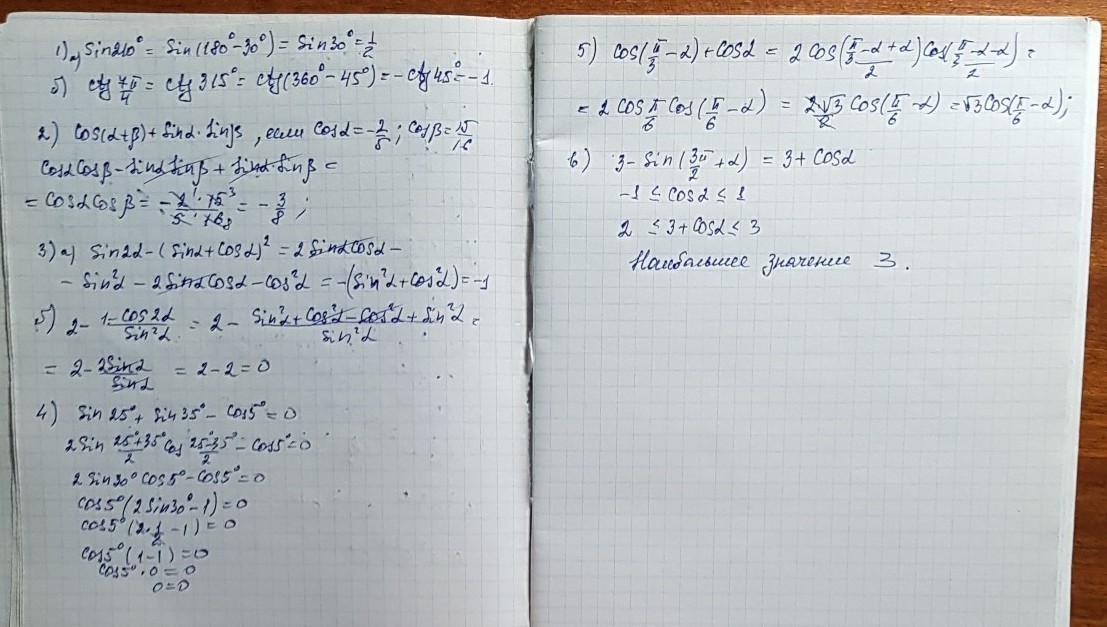 1) а) Sin210° = Sin(180°-30°) = Sin30° = 1/2
б) ctg 7π/4 = ctg 315° = ctg(360° - 45°) = -ctg 45° = -1.
2) Cos(α+β) + Sinα·Sinβ, если Cosα = -2/5; Cosβ = 15/16
CosαCosβ - SinαSinβ + Sinα·Sinβ =
= CosαCosβ = - 2·15/5·16 = - 3/8;
3) а) Sin2α - (Sinα + Cosα)² = 2 SinαCosα -
- Sin²α - 2SinαCosα - Cos²α = -(Sin²α + Cos²α) = -1
б) 2 - 1-Cos2α/Sin²α = 2 - Sin²α + Cos²α - Cos²α + Sin²α/Sin²α =
= 2 - 2Sin²α/Sin²α = 2 - 2 = 0
4) Sin 25° + Sin 35° - Cos5° = 0
2Sin 25°+35°/2 Cos 25°-35°/2 - Cos5° = 0
2 Sin30° Cos5° - Cos5° = 0
Cos5° (2Sin30° - 1) = 0
Cos5° (2·1/2 - 1) = 0
Cos5° (1-1) = 0
Cos5° · 0 = 0
0 = 0
5) Cos(π/3 - α) + Cosα = 2 Cos(π/3 - α + α)/2 Cos(π/3 - α - α)/2 =
= 2 Cos π/6 Cos(π/6 - α) = 2√3/2 Cos(π/6 - α) = √3 Cos(π/6 - α);
6) 3 - Sin(3π/2 + α) = 3 + Cosα
-1 ≤ Cosα ≤ 1
2 ≤ 3 + Cosα ≤ 3
Наибольшее значение 3.